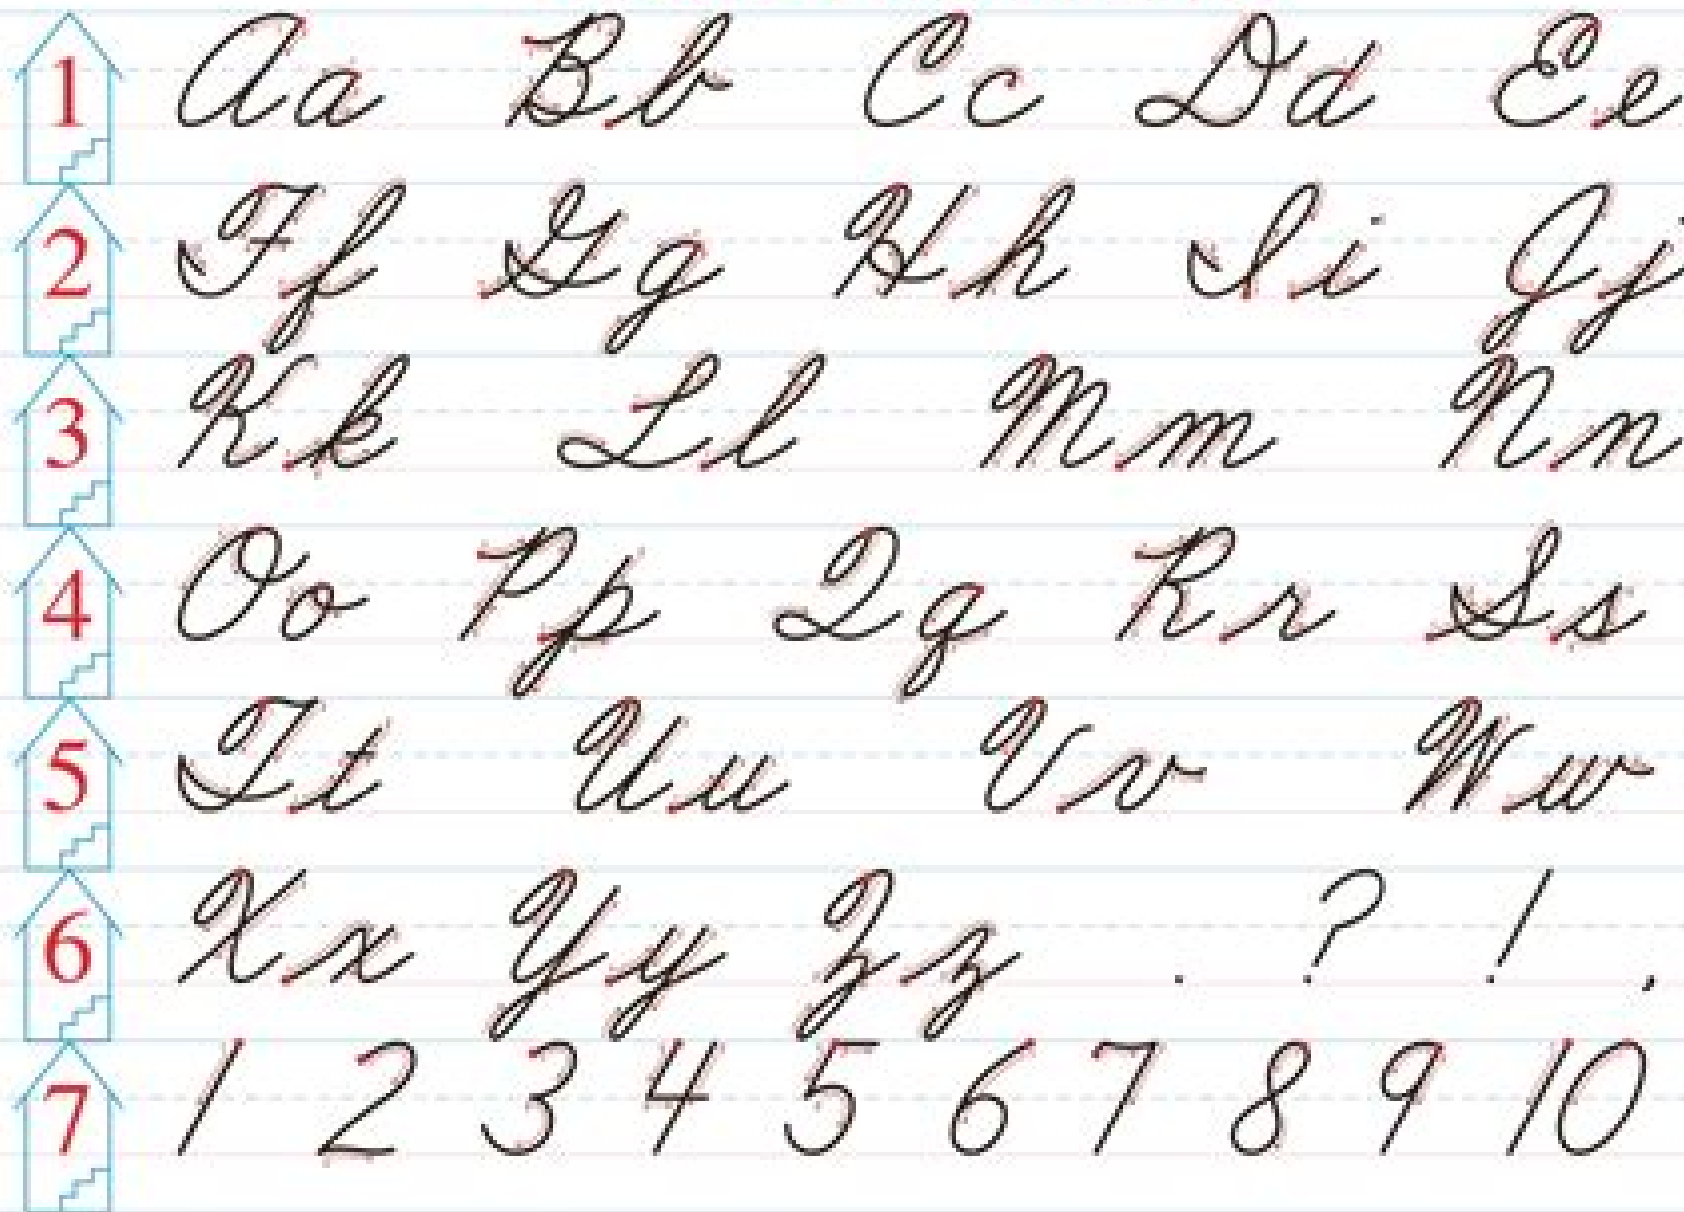 1 Aa Bb Cc Dd Ee
2 Ff Gg Hh Ii Jj
3 Kk Ll Mm Nn
4 Oo Pp Qq Rr Ss
5 Tt Uu Vv Ww
6 Xx Yy Zz . ? ! ,
7 1 2 3 4 5 6 7 8 9 10